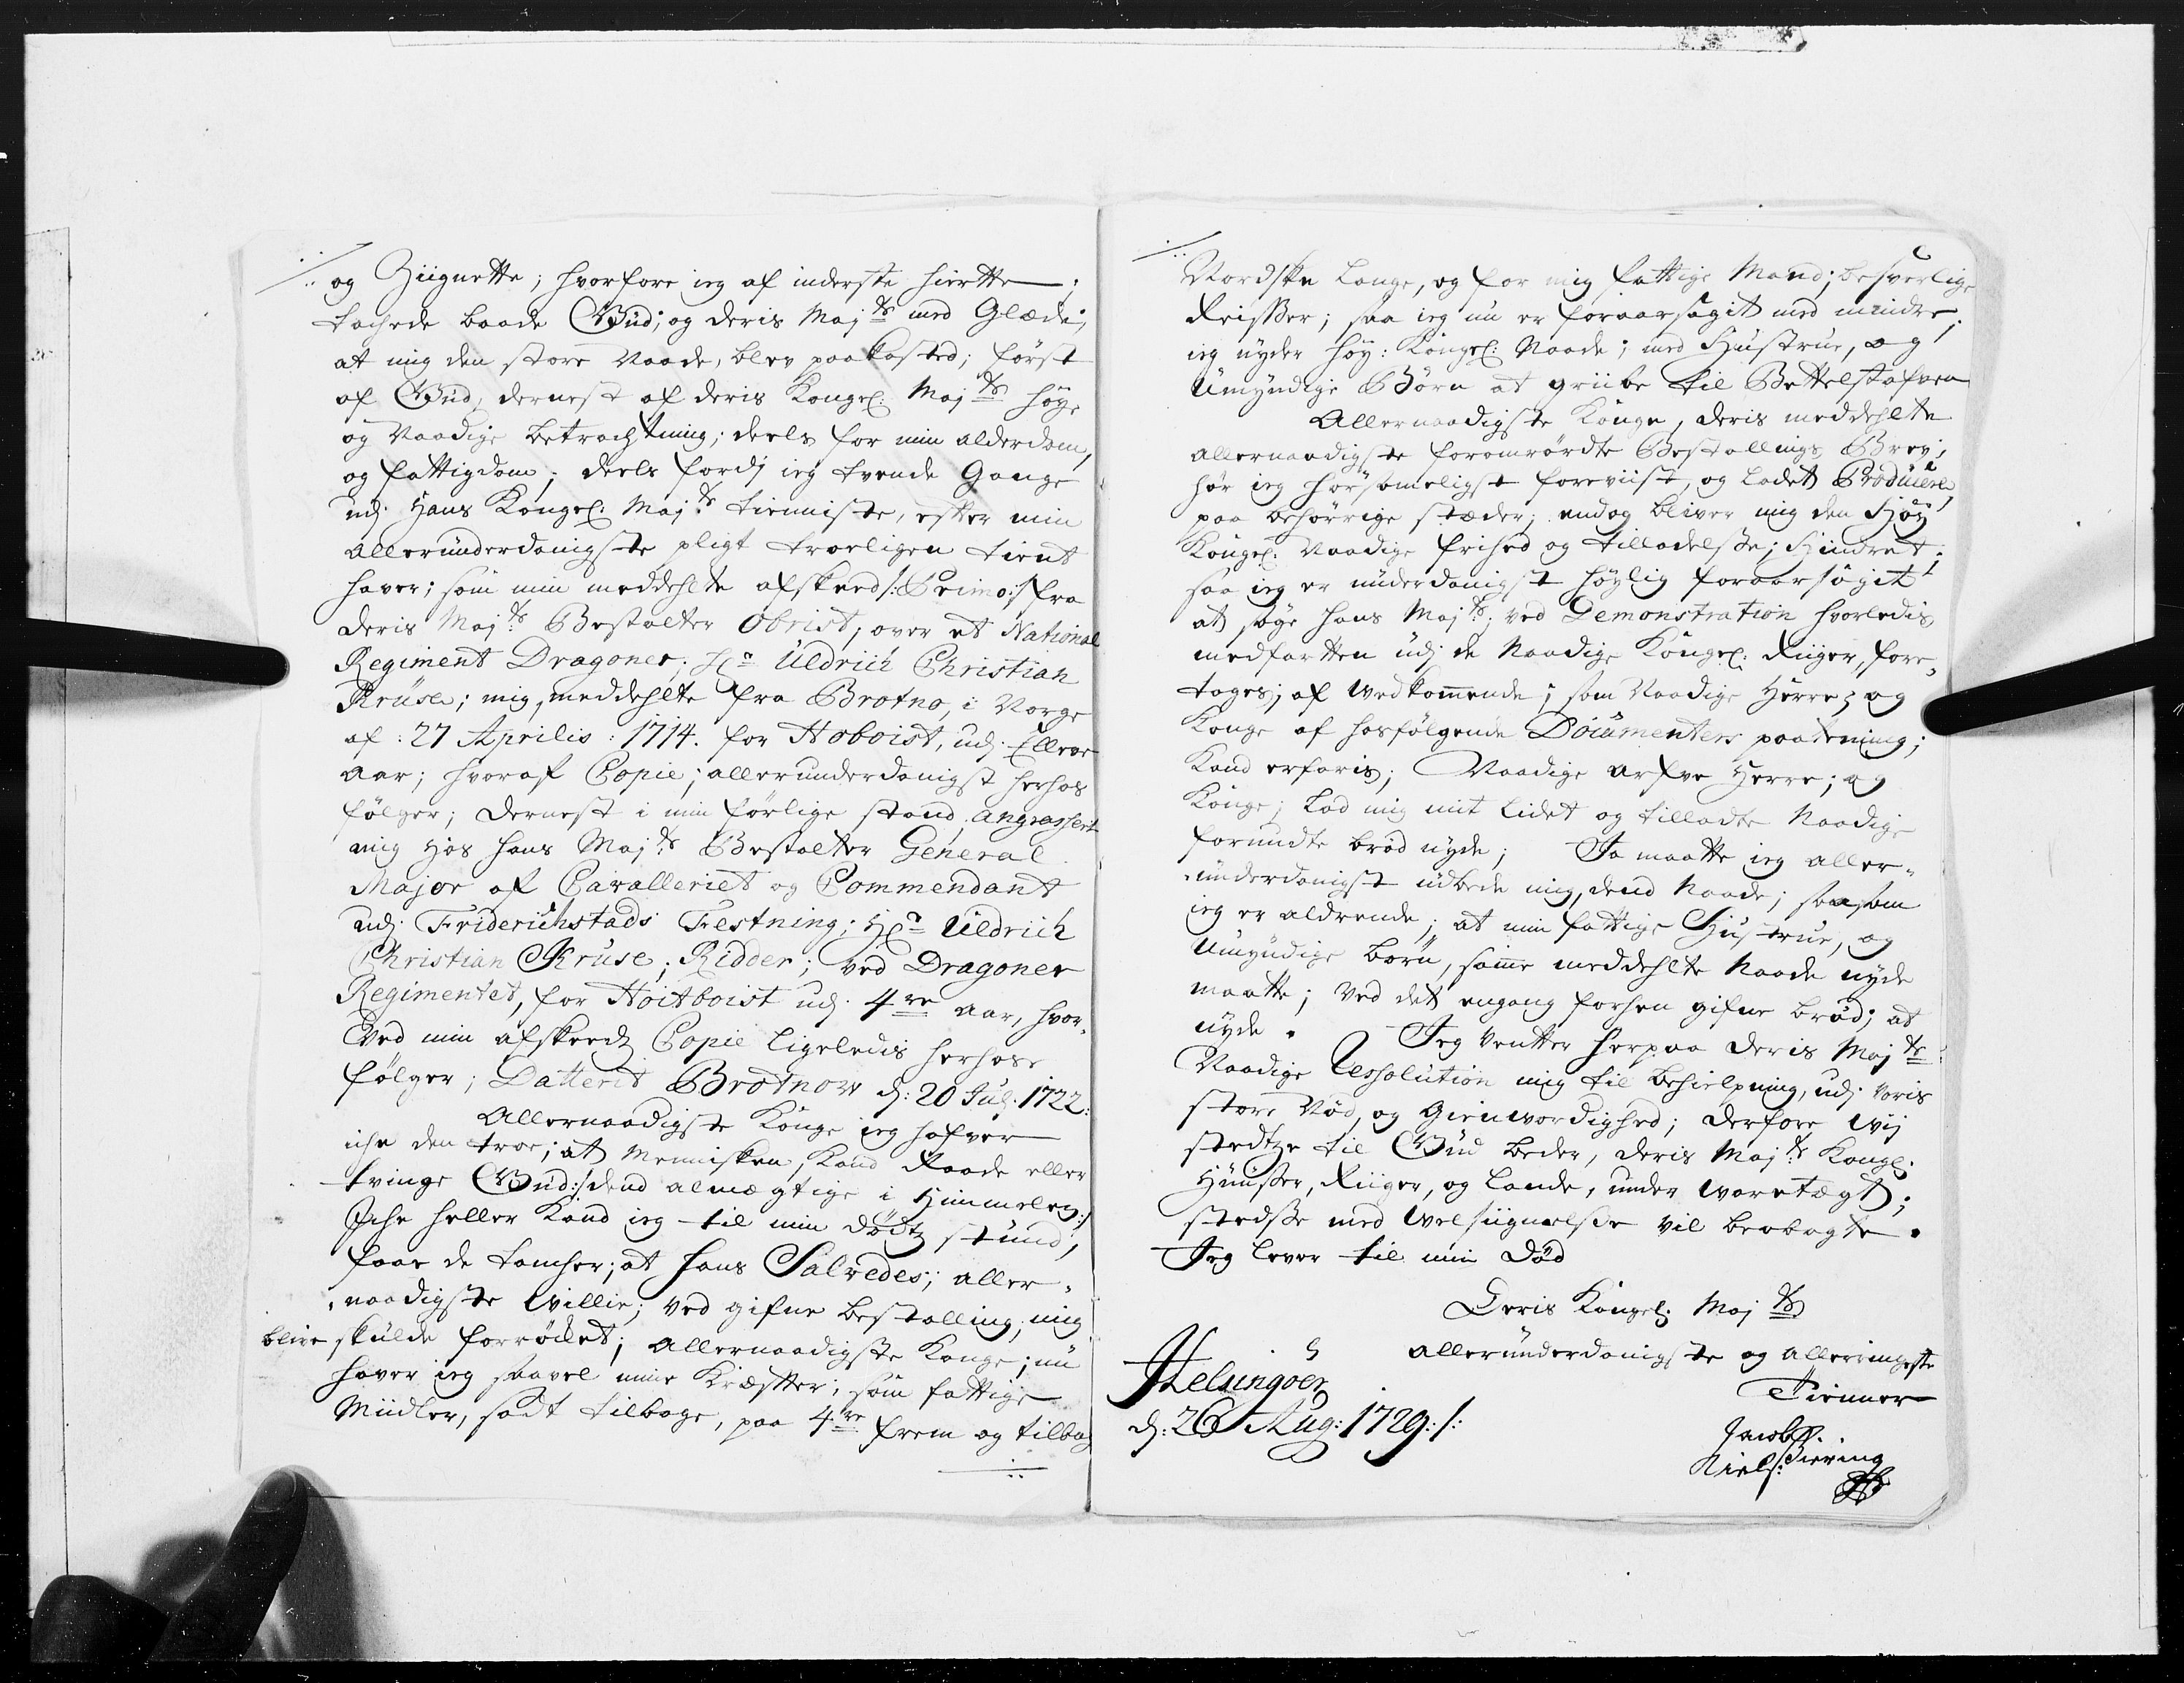 og Ziignette; hvorfore ieg af inderste hiertte;
tachede baade Gud; og deris Maj:ts med Glæde;
at mig den store Naade, blev paakasted; først
af Gud, dernest af deris Kongel: Maj:ts høye
og Naadige betrachtning; deels for min alderdom,
og fattigdom; deels fordj ieg tvende Gange
udj Hans Kongel: Maj:ts tienniste, efter min
allerunderdanigste pligt troeligen tient
haver; som min meddehlte afskeed /: Primo:/ fra
deris Maj:ts Bestalter Obrist, over et National
Regiment Dragoner; Hr: Uldrich Christian
Kruse; mig, meddehlte fra Brotno, i Norge
af: 27 Aprilis: 1714. for Hoboist, udj Ellevе
aar; hvoraf Copie; allerunderdanigst herhos
følger; dernest i min førlige stand, angrasseret
mig hos hans Maj:ts Bestalter General
Major af Cavalleriet og Commendant
udj Friderichstads Festning; Hr: Uldrich
Christian Kruse; Ridder; ved Dragoner
Regimentet, for Hoitboist udj 4re aar, hvor-
ved min afskeedz Copie ligeledis herhose
følger; Datterit Brotnow d: 20 Jul: 1722:
Allernaadigste Konge ieg hafver
iche den troe; at Mennisken, kand Raade eller
tvinge Gud:/ dend almægtige i Himmelen:/
Iche heller kand ieg til min dødtz stund,
faae de tancher; at hans Salvedes; aller-
naadigste Willie; ved gifne bestalling, mig
blive skulde forrøcket; Allernaadigste Konge; nu
haver ieg saavel mine Kræffter; som fattige
Midler, sadt tilbage, paa 4re frem og tilbag
Nordske lange, og for mig fattige Mand; besverlige
Reisser; saa ieg nu er foraarsagit med mindre;
ieg nyder høy: Kongel: Naade; med Hustrue, og
Umyndige Børn at griibe til Bettelstafven
Allernaadigste Konge, deris meddehlte
allernaadigste foromrørdte Bestallings Brev;
hør ieg hørsomeligst foreviist, og ladet Producere,
paa behørrige stæder; endog bliver mig den Høy
Kongel: Naadige frihed og tilladelsse; Hindret;
saa ieg er underdanigst høylig foraarsagit
at søge hans Maj:ts; ved Demonstration hvorledis
medfartten udj de Naadige Kongel: Riiger, fore-
tages; af Wedkommende; som Naadige Herre; og
Konge af hosfølgende Documenters paategning;
Kand erfaris; Naadige arfve Herre; og
Konge; lad mig mit lidet og tilladte Naadige
forundte brød nyde; Ja maatte ieg aller-
underdanigst udbede mig, dend Naade; saasom
ieg er aldrende; at min fattige Hustrue, og
Umyndige børn, samme meddehlte Naade nyde
maatte; ved det engang forhen gifne brød; at
nyde. Jeg ventter herpaa deris Maj:ts
Naadige Resolution mig til behielpning, udj voris
store Nød, og Gienwordighed; derfore Wij
stedtze til Gud beder, deris Maj:ts Kongl:
Huusser, Riiger, og Lande, under waretægt;
stedsse med Welsiignelsse vil beobagte.
Jeg lever til min Død
Deris Kongel: Maj:ts
allerunderdanigste og allerringeste
Tienner
Helsingöer
d: 26 Aug: 1729:/:
Jacob
Niels: Ziering